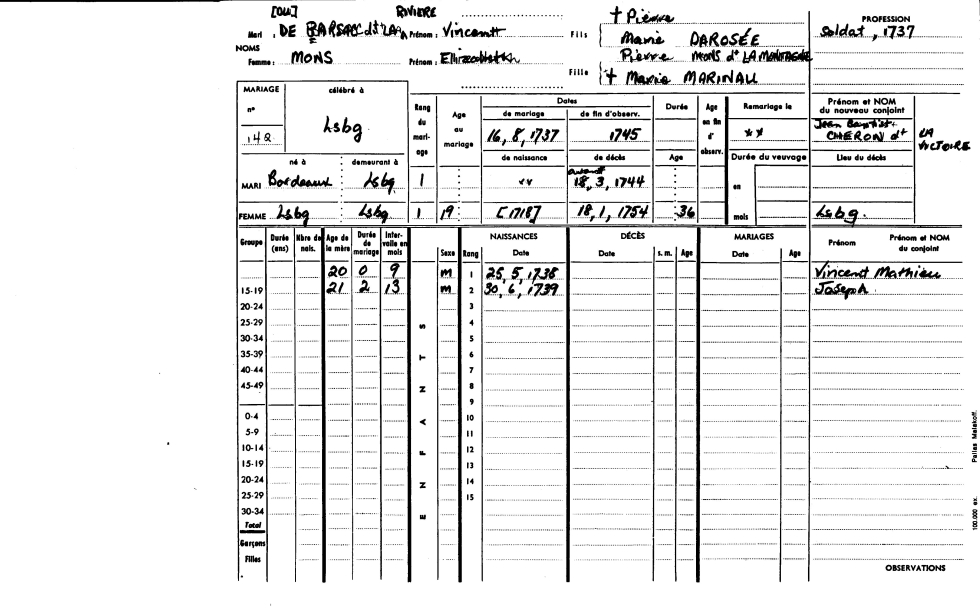 [OU] RIVIERE † Pierre PROFESSION
Mari : DE BARSAC dit LA Prénom : Vincent Fils Marie DAROSÉE Soldat, 1737
NOMS
Femme : MONS Prénom : Ellizabeth Pierre MONS dt LA MONTAGNE
Fille † Marie MARINAU
MARIAGE célébré à Rang du mariage Age au mariage Dates Durée Age en fin d'observ. Remariage le Prénom et NOM du nouveau conjoint
n° de mariage de fin d'observ.
142 Lsbg 16, 8, 1737 1745 ** Jean Baptist. CHERON dt LA VICTOIRE
né à demeurant à de naissance de décès Age Durée du veuvage Lieu du décès
MARI Bordeaux Lsbg 1 ** avant 18, 3, 1744 en
FEMME Lsbg Lsbg 1 19 [1718] 18, 1, 1754 36 mois Lsbg.
Groupe Durée (ans) Nbre de nais. Age de la mère Durée de mariage Intervalle en mois Sexe Rang NAISSANCES DÉCÈS MARIAGES Prénom Prénom et NOM du conjoint
Date Date s. m. Age Date Age
20 0 9 m 1 25, 5, 1738 Vincent Mathieu
15-19 21 2 13 m 2 30, 6, 1739 Joseph
20-24 3
25-29 S 4
30-34 5
35-39 T 6
40-44 7
45-49 N 8
9
0-4 A 10
5-9 11
10-14 F 12
15-19 13
20-24 N 14
25-29 15
30-34 E
Total
Garçons
Filles
OBSERVATIONS
100.000 ex. Pallas Malakoff.